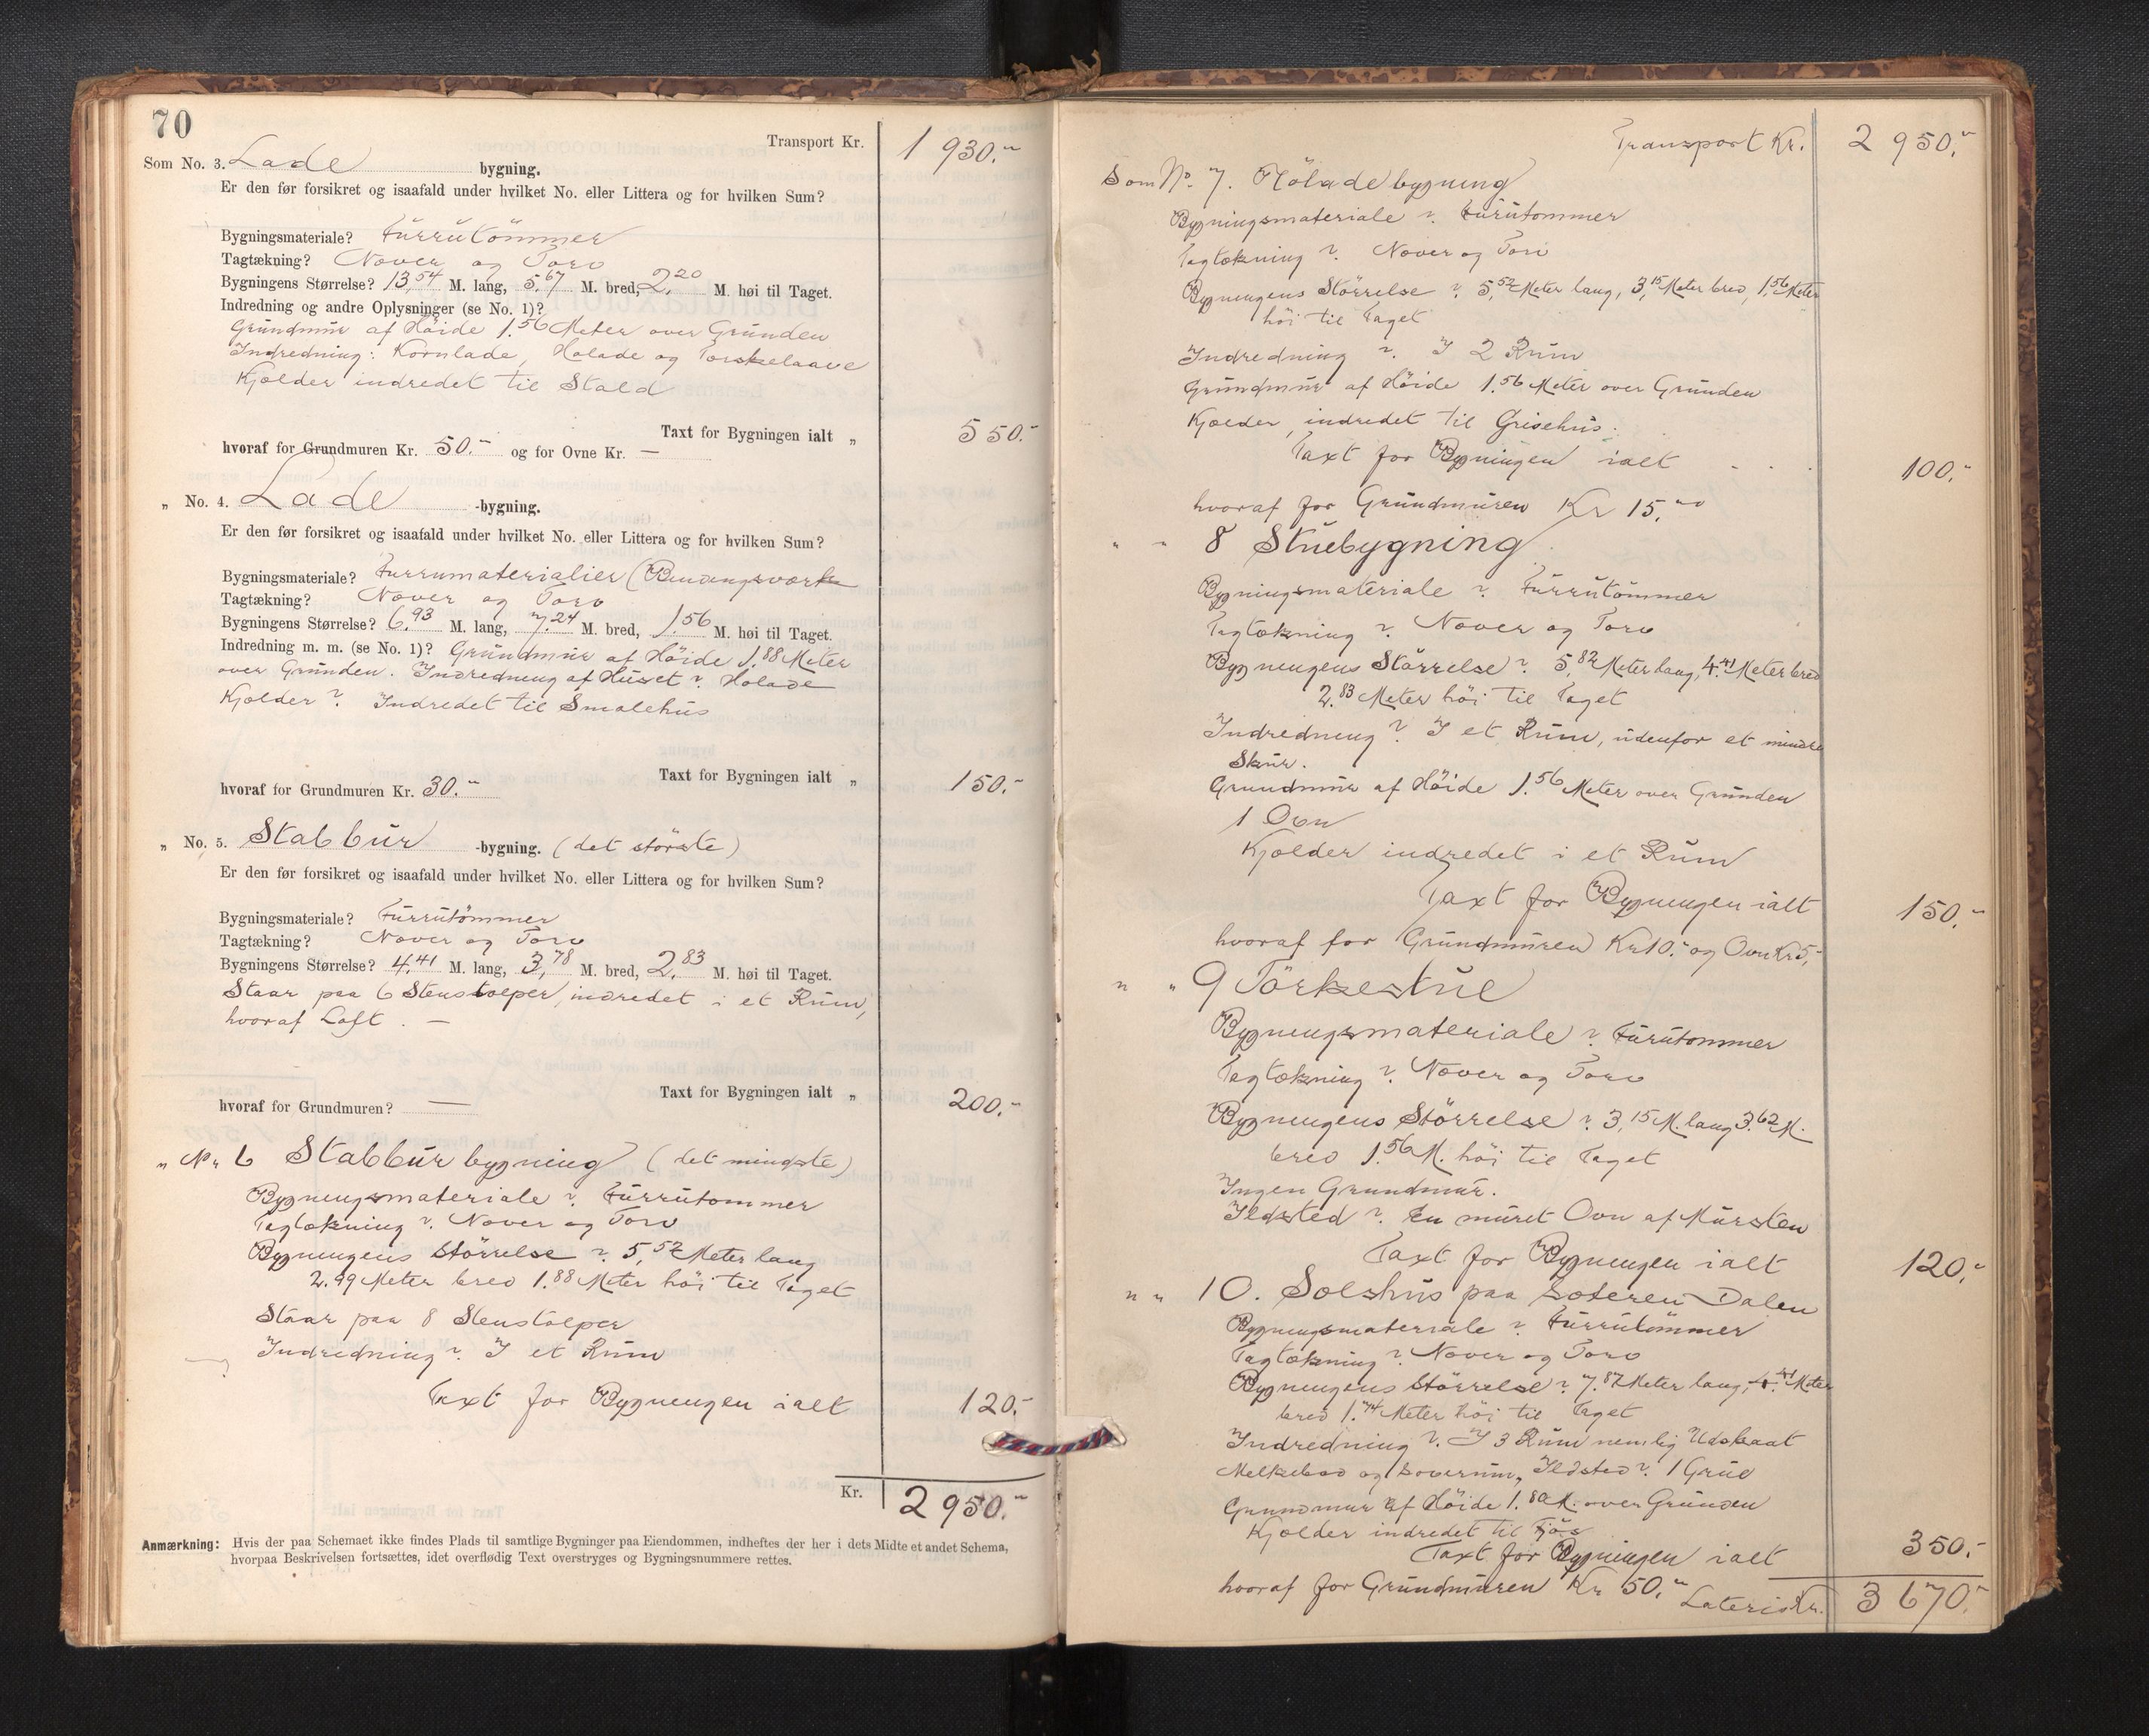 70
Transport Kr. 1 930.-
Som No. 3. Lade bygning.
Er den før forsikret og isaafald under hvilket No. eller Littera og for hvilken Sum?
Bygningsmateriale? Furrutömmer
Tagtækning? Næver og Torv
Bygningens Størrelse? 13,54 M. lang, 5,67 M. bred, 2,20 M. høi til Taget.
Indredning og andre Oplysninger (se No. 1)?
Grundmur af Höide 1.56 Meter over Grunden
Indredning: Kornlade, Hölade og Torskelaave
Kjælder indredet til Stald
Taxt for Bygningen ialt „ 550.-
hvoraf for Grundmuren Kr. 50.- og for Ovne Kr. —
„ No. 4. Lade -bygning.
Er den før forsikret og isaafald under hvilket No. eller Littera og for hvilken Sum?
Bygningsmateriale? Furrumaterialier (Bindingsværk
Tagtækning? Næver og Torv
Bygningens Størrelse? 6.93 M. lang, 7.24 M. bred, 1.56 M. høi til Taget.
Indredning m. m. (se No. 1)? Grundmur af Höide 1.88 Meter
over Grunden. Indredning af Huset? Hölade
Kjælder? Indredet til Smalehus
Taxt for Bygningen ialt „ 150.-
hvoraf for Grundmuren Kr. 30.-
„ No. 5. Stabbur -bygning. (det störste)
Er den før forsikret og isaafald under hvilket No. eller Littera og for hvilken Sum?
Bygningsmateriale? Furrutömmer
Tagtækning? Næver og Torv
Bygningens Størrelse? 4.41 M. lang, 3,78 M. bred, 2.83 M. høi til Taget.
Staar paa 6 Stenstolper, indredet i et Rum,
hvoraf Loft. —
Taxt for Bygningen ialt „ 200.-
hvoraf for Grundmuren? —
„ Nr 6 Stabburbygning (det mindste)
Bygningsmateriale? Furrutömmer
Tagtækning? Næver og Torv
Bygningens Störrelse? 5,52 Meter lang
2.99 Meter bred 1.88 Meter höi til Taget
Staar paa 8 Stenstolper
Indredning? I et Rum
Taxt for Bygningen ialt 120.-
Kr. 2 950.-
Anmærkning: Hvis der paa Schemaet ikke findes Plads til samtlige Bygninger paa Eiendommen, indheftes der her i dets Midte et andet Schema,
hvorpaa Beskrivelsen fortsættes, idet overflødig Text overstryges og Bygningsnummere rettes.
Transport Kr. 2 950.-
Som No. 7. Flöladebygning
Bygningsmateriale? Furutommer
Tagtækning? Næver og Torv
Bygningens Störrelse? 5,52 Meter lang, 3,15 Meter bred, 1,56 Meter
höi til Taget
Indredning? I 2 Rum
Grundmur af Höide 1.56 Meter over Grunden
Kjælder, indredet til Grisehus.
Taxt for Bygningen ialt . . . 100.-
hvoraf for Grundmuren Kr 15.-
" " 8 Stuebygning
Bygningsmateriale? Furrutömmer
Tagtækning? Næver og Torv
Bygningens Störrelse? 5,82 Meter lang, 4.41 Meter bred
2.83 Meter höi til Taget
Indredning? I et Rum, udenfor et mindre
Skur.
Grundmur af Höide 1.56 Meter over Grunden
1 Ovn
Kjælder indredet i et Rum
Taxt for Bygningen ialt 150.-
hvoraf for Grundmuren Kr 10.- og Ovn Kr 5,-
" " 9 Törkestue
Bygningsmateriale? Furutommer
Tagtækning? Næver og Torv
Bygningens Störrelse? 3,15 M. lang 3.62 M.
bred 1.56 M. höi til Taget
Ingen Grundmur.
Ildsted? En muret Ovn af Mursten
Taxt for Bygningen ialt 120.-
" " 10. Selshus paa Dalen
Bygningsmateriale? Furrutömmer
Tagtækning? Næver og Torv
Bygningens Störrelse? 7.87 Meter lang, 4.41 Meter
bred 1.74 Meter höi til Taget
Indredning? I 3 Rum nemlig
Melkebod og Soverum, Ildsted? 1 Grue
Grundmur af Höide 1.80 M. over Grunden
Kjælder indredet til Fjös
Taxt for Bygningen ialt 350.-
hvoraf for Grundmuren Kr 50.-
Lateris Kr. 3 670.-